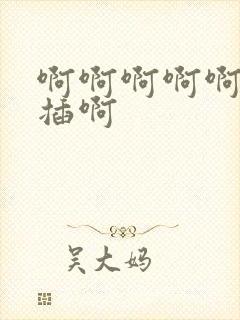 啊啊啊啊啊
插啊
吴大妈